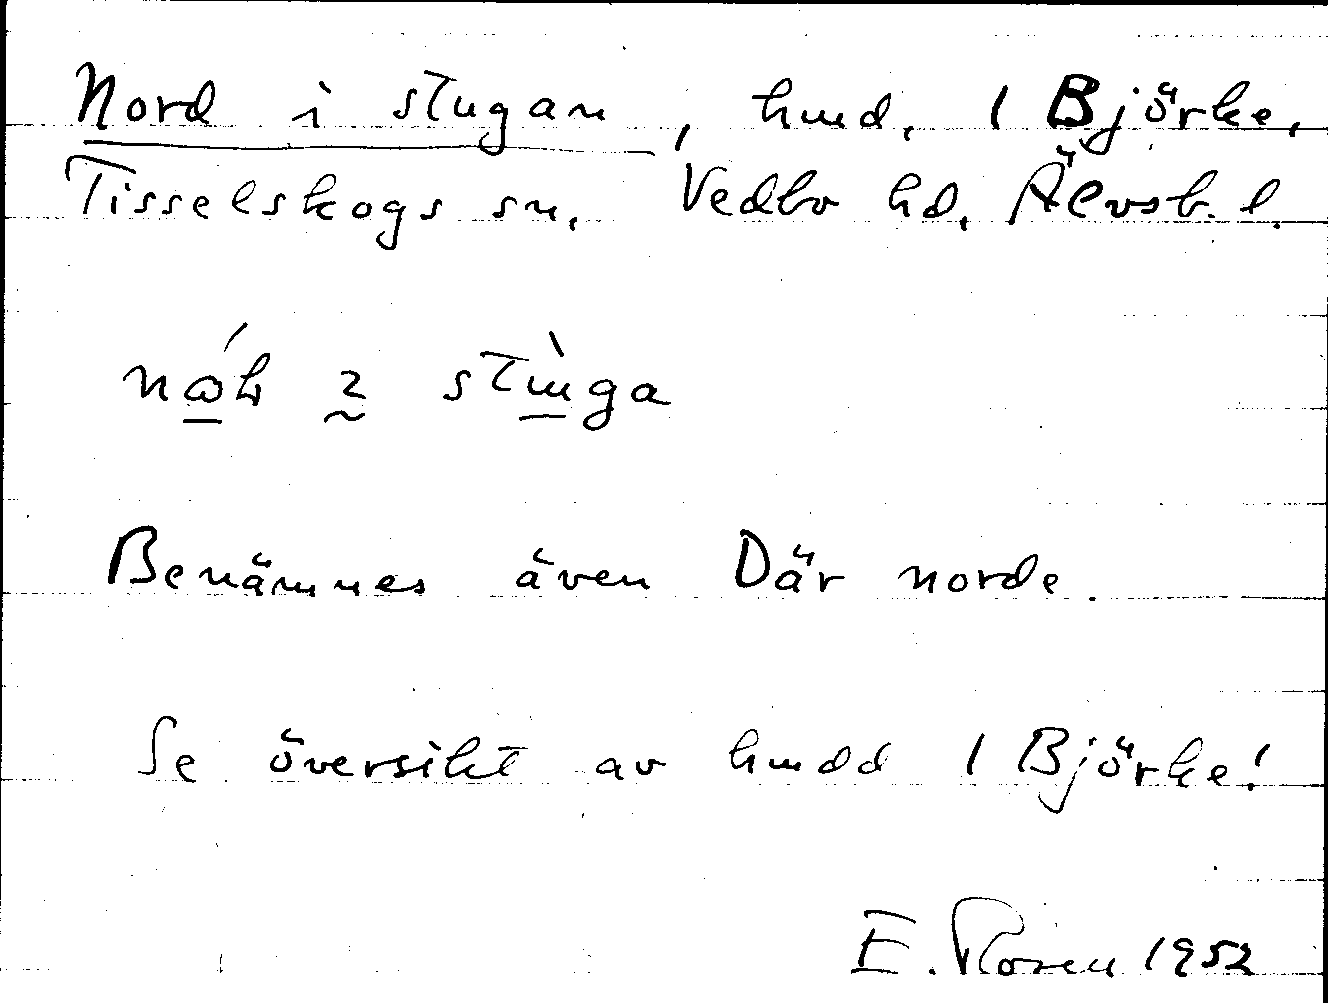 Nord i stugan, hmd, 1 Björke,
Tisselskogs sn, Vedbo hd, Älvsb. l.
Benämnes även Där norde.
Se översikt av hmdd 1 Björke!
E. Rosén 1952